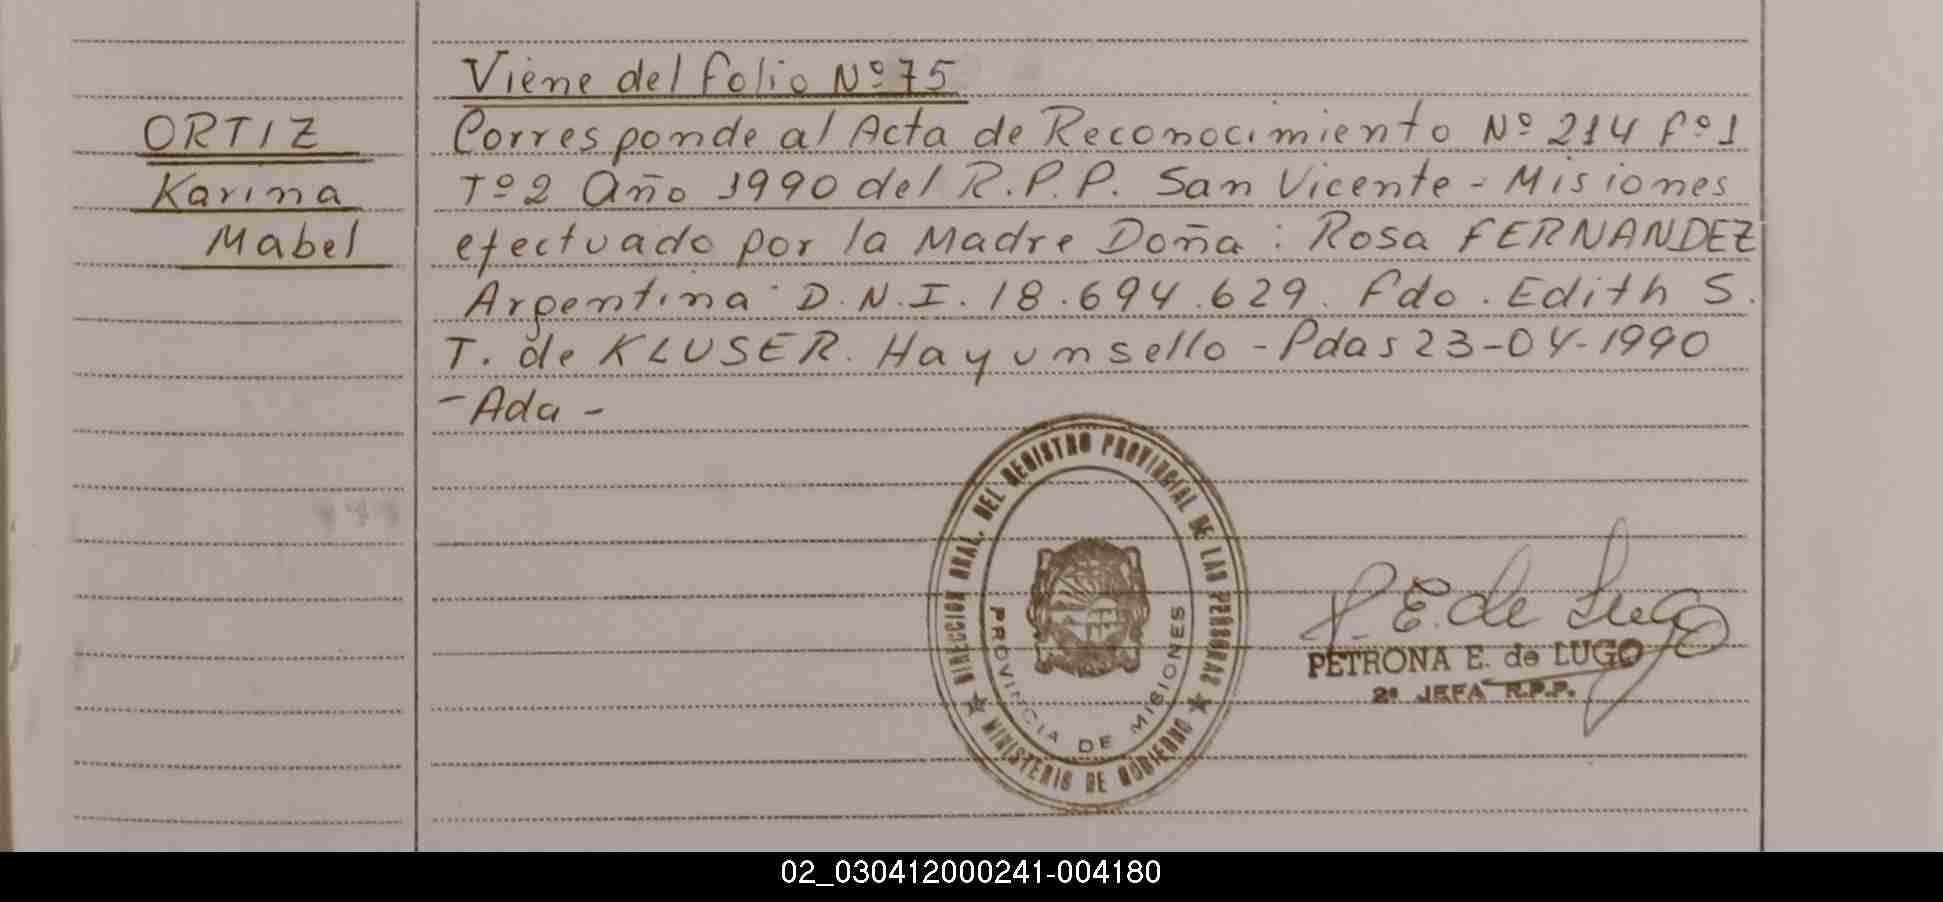 Viene del folio Nº 75
ORTIZ
Karina
Mabel
Corresponde al Acta de Reconocimiento Nº 214 fº 1
Tº 2 Año 1990 del R.P.P. San Vicente - Misiones
efectuado por la Madre Doña : Rosa FERNANDEZ
Argentina D.N.I. 18.694.629. Fdo. Edith S.
T. de KLUSER. Hay un sello - Pdas 23-04-1990
- Ada -
DIRECCION GRAL. DEL REGISTRO PROVINCIAL DE LAS PERSONAS
MINISTERIO DE GOBIERNO
PROVINCIA DE MISIONES
P. E. de Lugo
PETRONA E. de LUGO
2ª JEFA R.P.P.
02_030412000241-004180